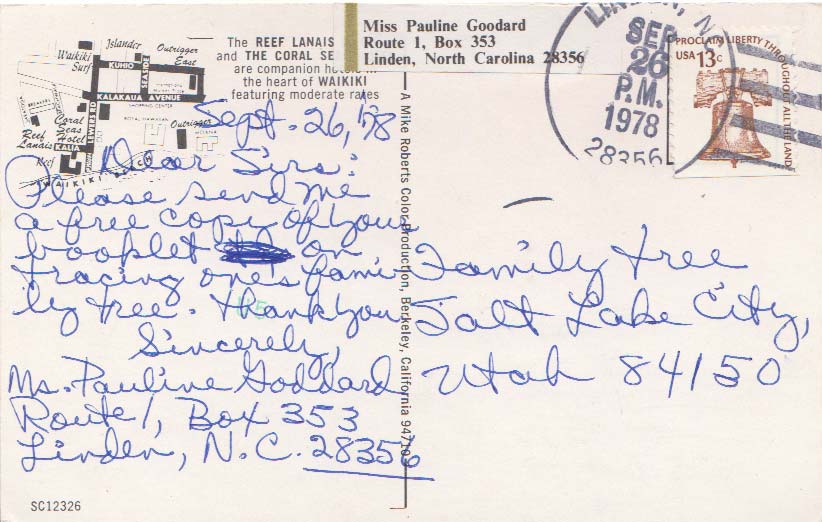 The REEF LANAIS
and THE CORAL SE
are companion hotels in
the heart of WAIKIKI
featuring moderate rates
Islander
Waikiki
Surf
Outrigger
East
KUHIO
SEASIDE
KALAKAUA AVENUE
SHOPPING CENTER
ROYAL HAWAIIAN
LEWERS RD
Coral
Seas
Hotel
Reef
Lanais
KALIA
Outrigger
Reef
WAIKIKI BEACH
Miss Pauline Goodard
Route 1, Box 353
Linden, North Carolina 28356
LINDEN, N
SEP
26
P.M.
1978
28356
PROCLAIM LIBERTY THROUGHOUT ALL THE LAND
USA 13c
Sept. 26, 1978
Dear Sirs:
Please send me
a free copy of your
booplet on
tracing one's fami
ly tree. Thank you
Sincerely,
Ms. Pauline Goddard
Route 1, Box 353
Linden, N.C. 28356
A Mike Roberts Color Production, Berkeley, California 94710
Family tree
Salt Lake City,
Utah 84150
SC12326